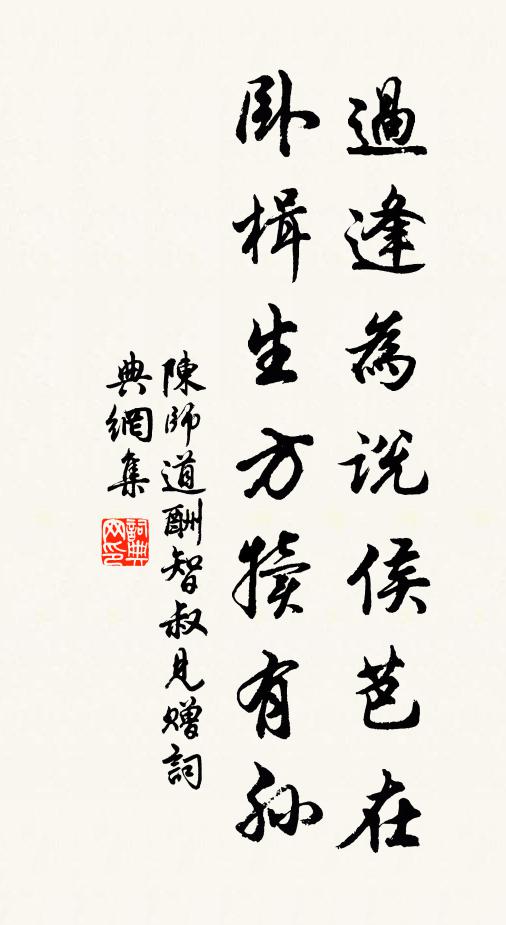 過逢為說侯芭在
卧楫生方犢有孫
陳師道酬智叔見贈詞
典網集
詞典
网印